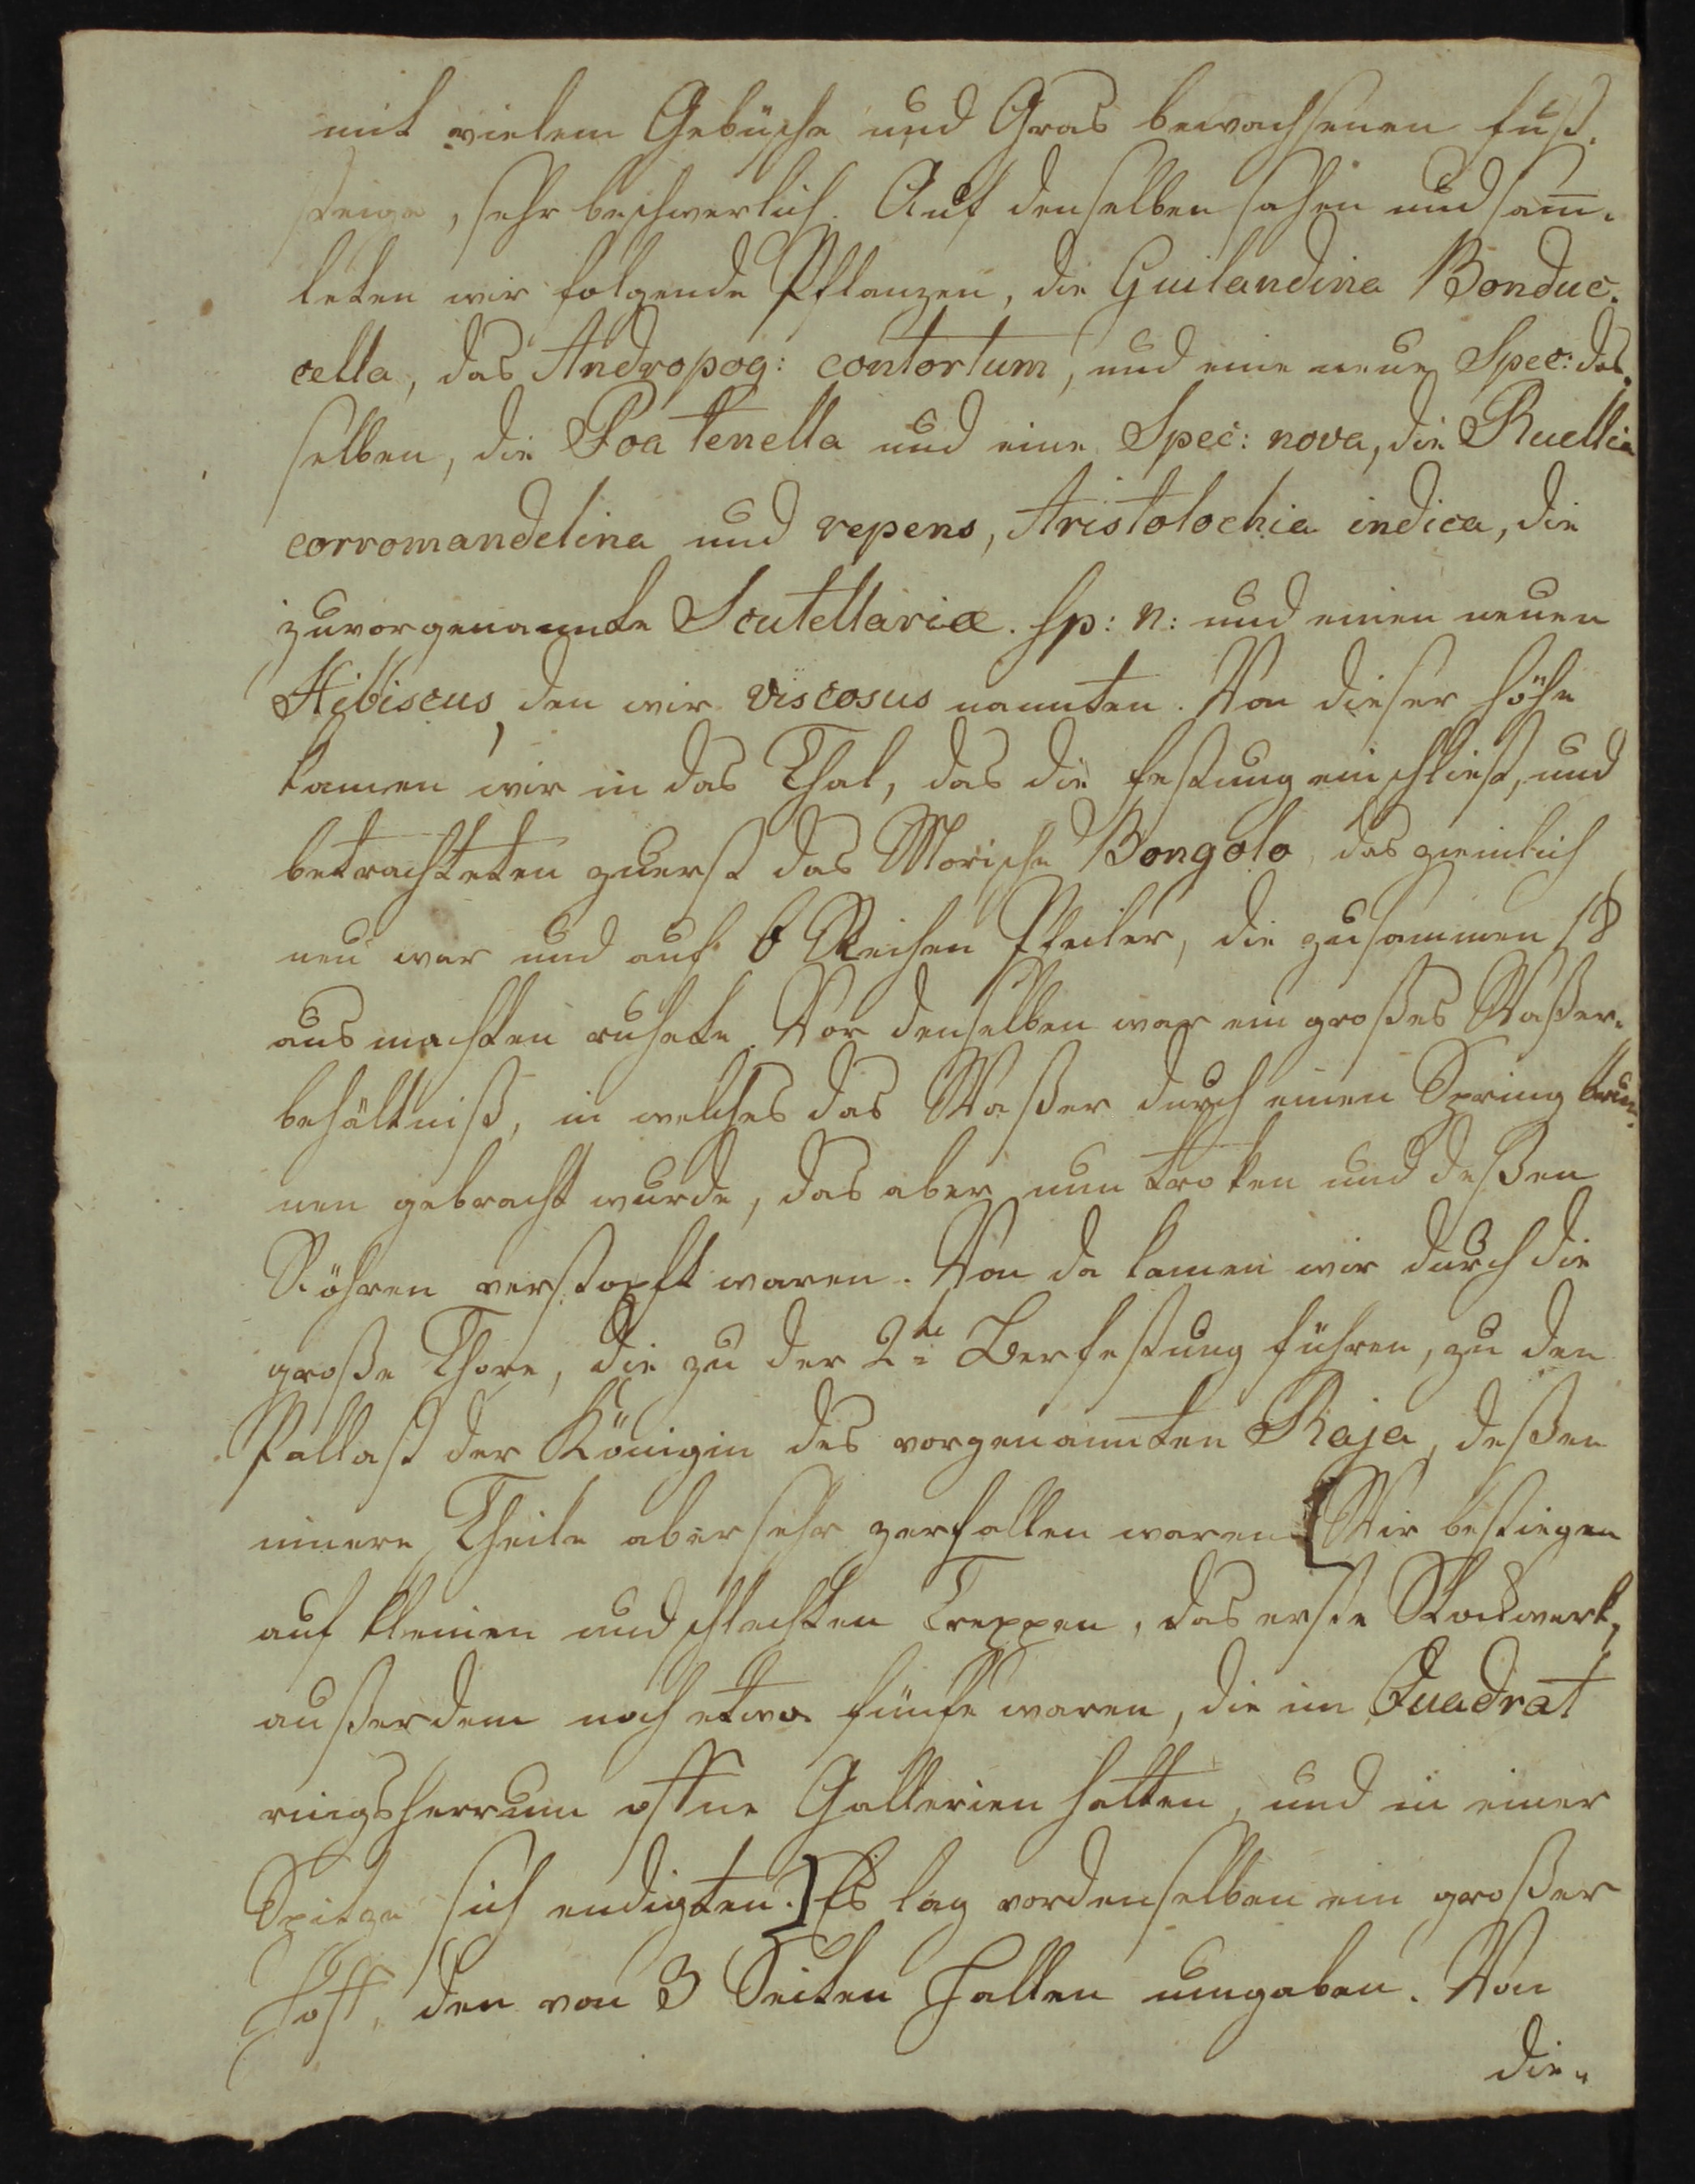 mit vielem Gebüsche und Gras bewachsenen fuß-
steige, sehr beschwerlich. Auf denselben sahen und sam̅-
leten wir folgende Pflanzen, die Guilandina Bonduc-
cella, das Andropog: contortum, und eine neue Spec: des-
selben, die Poa tenella und eine Spec: nova, die Ruellia
corromandelina und repens, Aristolochia indica, die
zuvorgenannte Scutellariæ. sp: n: und einen neuen
Hibiscus, den wir viscosus nannten. Von dieser Höhe
kamen wir in das Thal, das die festung einschliest, und
betrachteten zuerst das Morische Bongolo, das zeimlich
neu war und auf 6 Reihen Pfeiler, die zusammen 18
ausmachten ruhete. Vor denselben war ein großes Waßer-
behältniß, in welches das Waßer durch einen Spring brun-
nen gebracht wurde, das aber nun troken und deßen
Röhren verstopft waren. Von da kamen wir durch die
große Thore, die zu der 2te Berfestung führen, zu den
Pallast der Königin des vorgenannten Raja, deßen
innere Theile aber sehr zerfallen waren [Wir bestiegen
auf kleinen und schlechten Treppen, das erste Stockwerk,
außerdem noch etwa fünfe waren, die im Quadrat
ringsherrum offne Gallerien hatten, und in einer
Spitze sich endigten.] Es lag vor denselben ein großer
Hoff, den von 3 Seiten Hallen umgaben. Von
die-